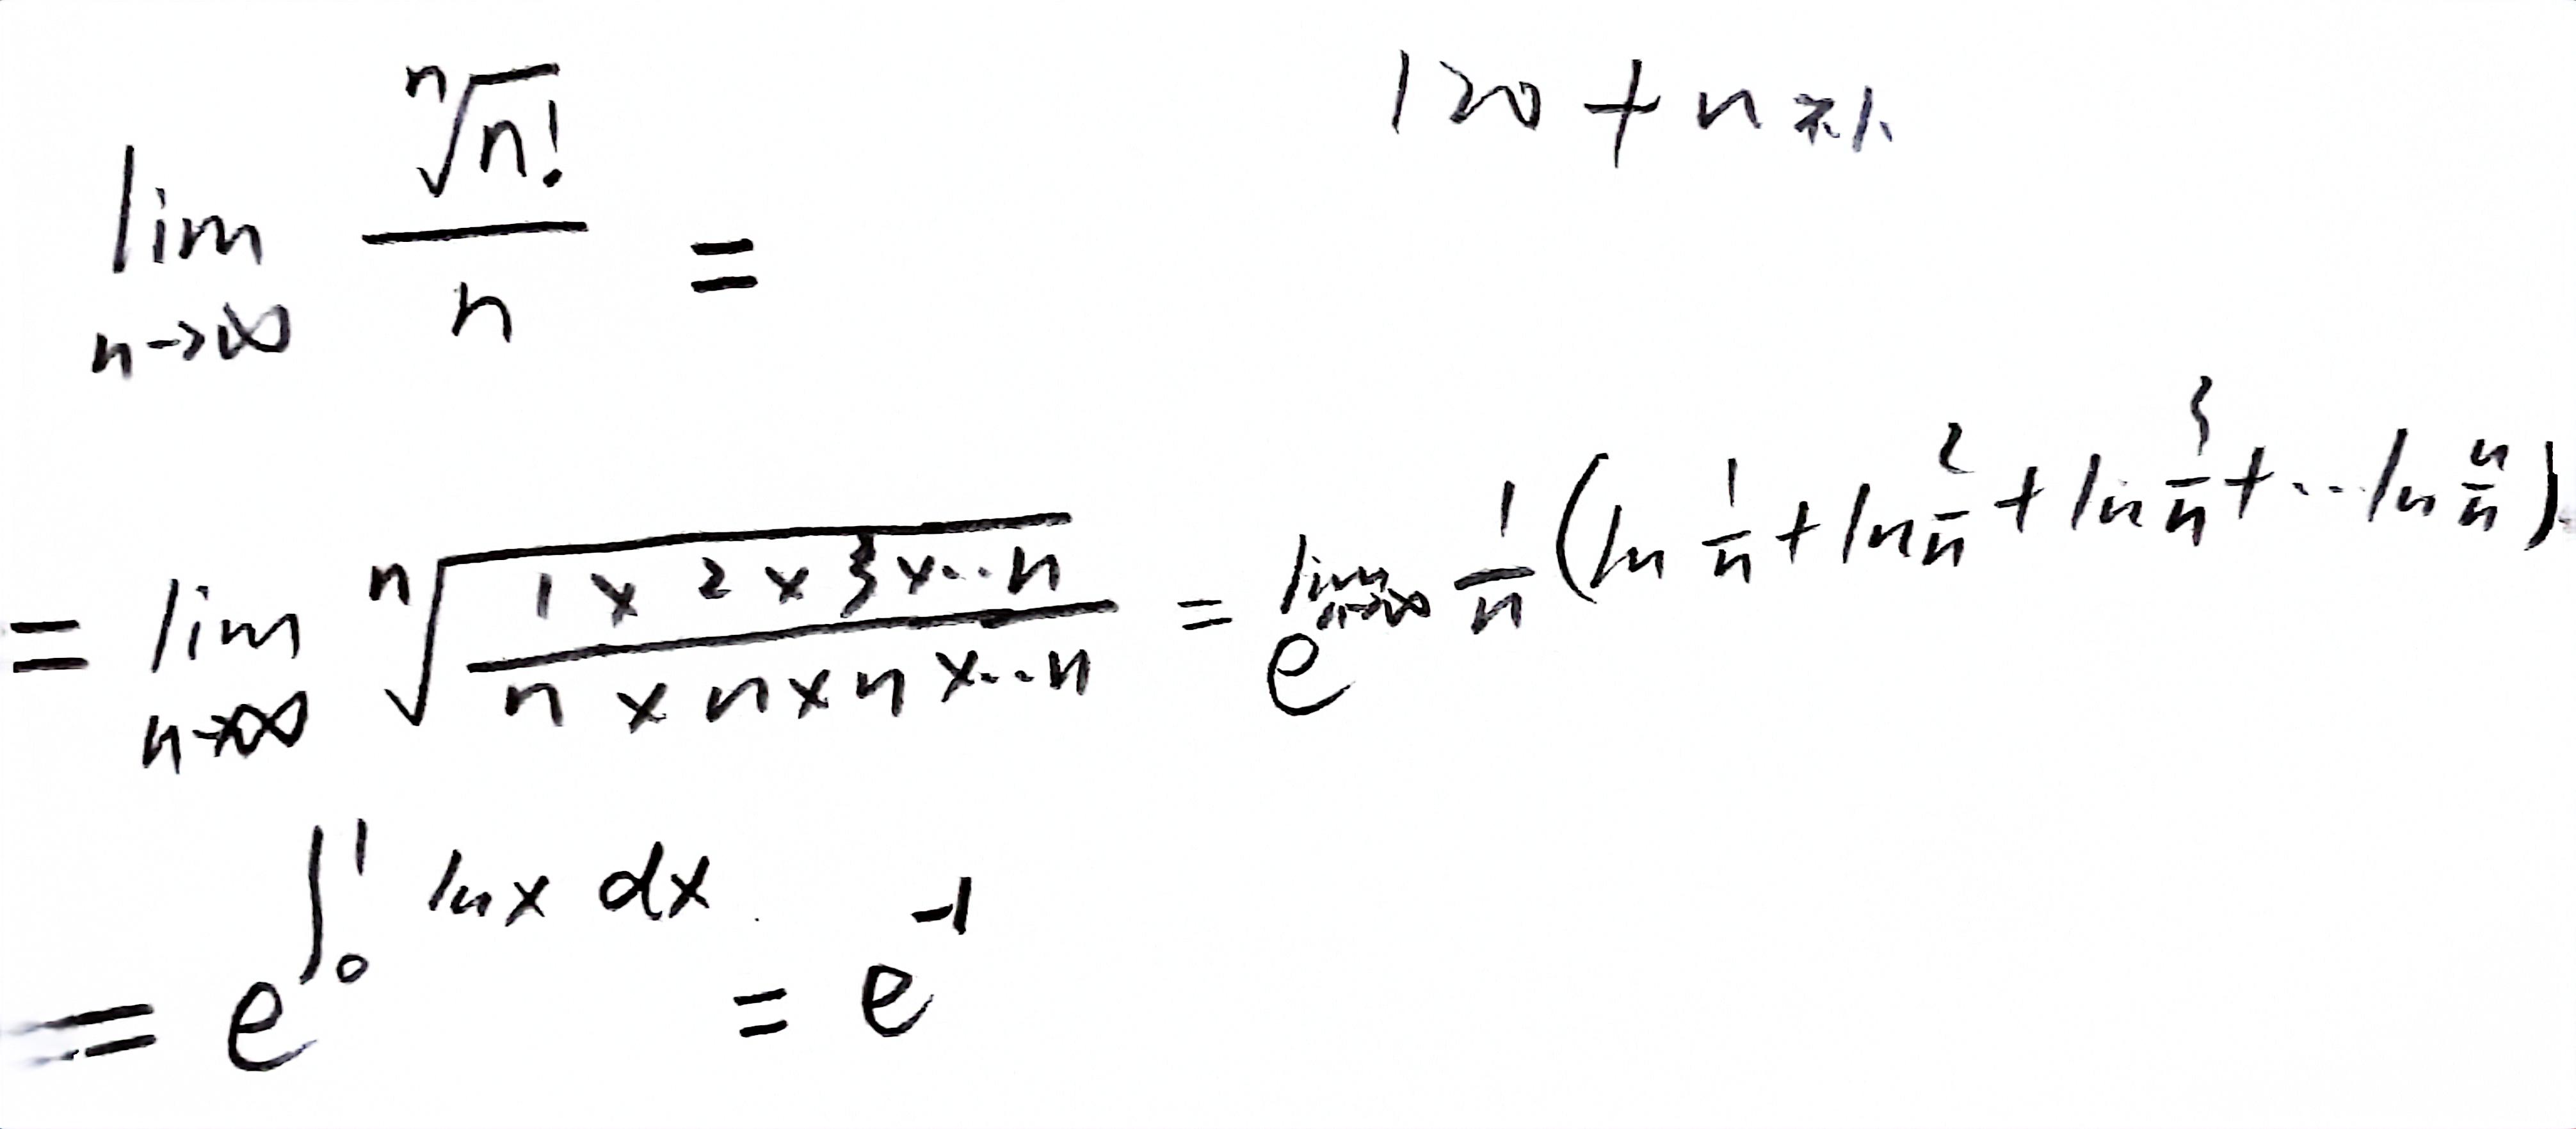 lim n→∞ ⁿ√n! / n =
120 + n
= lim n→∞ ⁿ√(1 × 2 × 3 × ·· n / n × n × n × ·· n) = e^(lim n→∞ 1/n (ln 1/n + ln 2/n + ln 3/n + ·· ln n/n))
= e^(∫₀¹ ln x dx) = e⁻¹